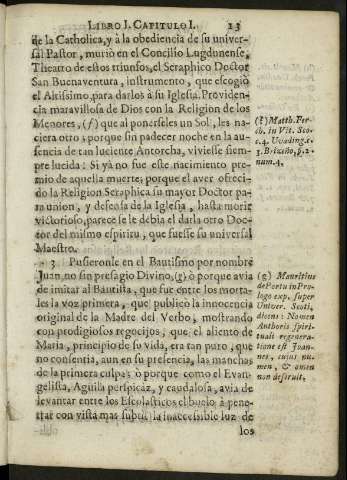 LIBRO I. CAPITULO I. 23
de la Catholica, y à la obediencia de su univer-
sal Pastor, murió en el Concilio Lugdunense,
Theatro de estos triunfos, el Seraphico Doctor
San Buenaventura, instrumento, que escogiò
el Altissimo, para darlos à su Iglesia. Providen-
cia maravillosa de Dios con la Religion de los
Menores, (f) que al ponerseles un Sol, les na-
ciera otro; porque sin padecer noche en la au-
sencia de tan luciente Antorcha, viviesse siem-
pre lucida: Si yà no fue este nacimiento pre-
mio de aquella muerte; porque el aver ofreci-
do la Religion Seraphica su mayor Doctor pa-
ra union, y defensa de la Iglesia, hasta morir
victorioso, parece se le debia el darla otro Doc-
tor del mismo espiritu, que fuesse su universal
Maestro.
3 Pusieronle en el Bautismo por nombre
Juan, no sin presagio Divino, (g) ò porque avia
de imitar al Bautista, que fue entre los morta-
les la voz primera, que publicò la innocencia
original de la Madre del Verbo, mostrando
con prodigiosos regocijos, que el aliento de
Maria, principio de su vida, era tan puro, que
no consentia, aun en su presencia, las manchas
de la primera culpa: ò porque como el Evan-
gelista, Aguila perspicaz, y caudalosa, avia de
levantar entre los Escolasticos el buelo à pene-
trar con vista mas subtil la inaccessible luz de
los
(f) Matth. Fer-
ch. in Vit. Sco-
c. 4. Uvading. c.
3. Brizeño, p. 2.
num. 4.
(g) Mauritius
de Portu in Pro-
logo exp. super
Univer. Scoti,
dicens: Nomen
Authoris spiri-
tuali regenera-
tione est Joan-
nes, cuius nu-
men, & omen
non deseruit.